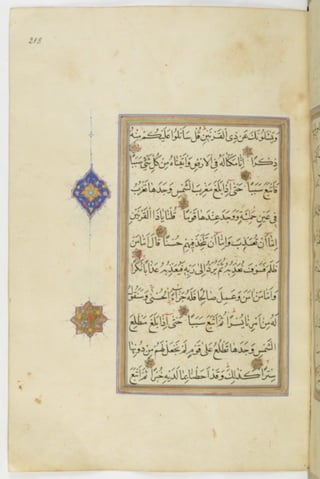 215
وَيَسْئَلُونَكَ عَنْ ذِي الْقَرْنَيْنِ قُلْ سَاَتْلُوا عَلَيْكُمْ مِنْهُ
ذِكْرًا اِنَّا مَكَّنَّا لَهُ فِي الْاَرْضِ وَاٰتَيْنَاهُ مِنْ كُلِّ شَيْءٍ سَبَبًا
فَاَتْبَعَ سَبَبًا حَتّٰى اِذَا بَلَغَ مَغْرِبَ الشَّمْسِ وَجَدَهَا تَغْرُبُ
فِي عَيْنٍ حَمِئَةٍ وَوَجَدَ عِنْدَهَا قَوْمًا قُلْنَا يَاذَا الْقَرْنَيْنِ
اِمَّا اَنْ تُعَذِّبَ وَاِمَّا اَنْ تَتَّخِذَ فِيهِمْ حُسْنًا قَالَ اَمَّا مَنْ
ظَلَمَ فَسَوْفَ نُعَذِّبُهُ ثُمَّ يُرَدُّ اِلٰى رَبِّهِ فَيُعَذِّبُهُ عَذَابًا نُكْرًا
وَاَمَّا مَنْ اٰمَنَ وَعَمِلَ صَالِحًا فَلَهُ جَزَاءً الْحُسْنٰى وَسَنَقُولُ
لَهُ مِنْ اَمْرِنَا يُسْرًا ثُمَّ اَتْبَعَ سَبَبًا حَتّٰى اِذَا بَلَغَ مَطْلِعَ
الشَّمْسِ وَجَدَهَا تَطْلُعُ عَلٰى قَوْمٍ لَمْ نَجْعَلْ لَهُمْ مِنْ دُونِهَا
سِتْرًا كَذٰلِكَ وَقَدْ اَحَطْنَا بِمَا لَدَيْهِ خُبْرًا ثُمَّ اَتْبَعَ